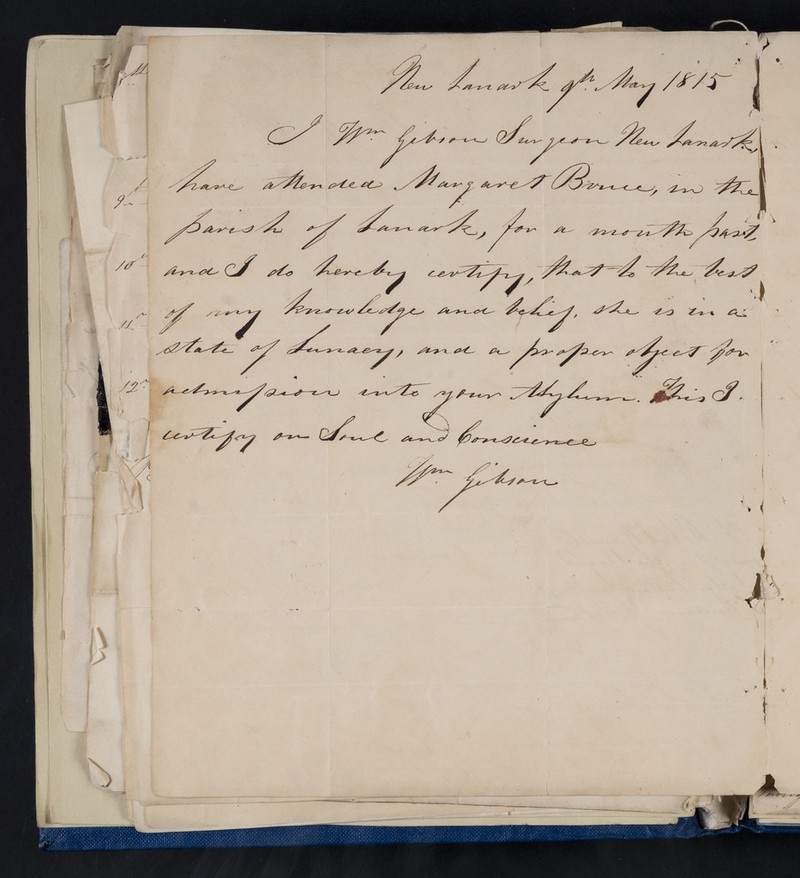 New Lanark 9th May 1815
I Wm Gibson Surgeon New Lanark,
have attended Margaret Bruce, in the
parish of Lanark, for a month past,
and I do hereby certify, that to the best
of my knowledge and belief, she is in a
state of Lunacy, and a proper object for
admission into your Asylum. This I
certify on Soul and Conscience
Wm Gibson